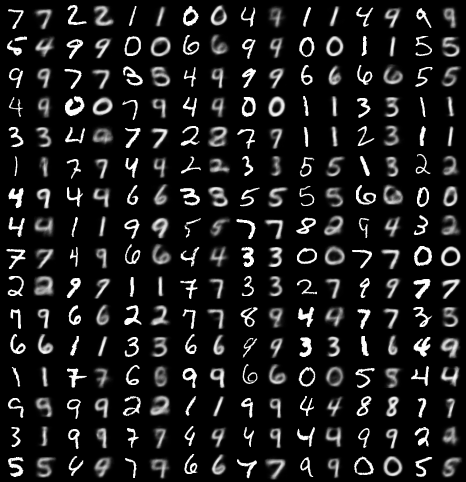 7 7 2 2 1 1 0 0 4 9 1 1 4 9 9 9
5 4 9 9 0 0 6 6 9 9 0 0 1 1 5 5
9 9 7 7 3 5 4 9 9 9 6 6 6 6 5 5
4 9 0 0 7 9 4 9 0 0 1 1 3 3 1 1
3 3 4 7 7 2 2 7 9 1 1 2 3 1 1
1 1 7 7 4 4 2 2 3 3 5 5 1 3 2 2
4 9 4 9 6 6 3 3 5 5 5 5 6 6 0 0
4 4 1 1 9 9 5 5 7 7 8 2 9 4 3 2
7 7 4 9 6 6 4 4 3 3 0 0 7 7 0 0
2 2 9 9 1 1 7 7 3 3 2 7 9 9 7 7
7 9 6 6 2 2 7 7 8 9 4 4 7 7 3 5
6 6 1 1 3 3 6 6 9 9 3 3 1 6 4 9
1 1 7 7 6 6 9 9 6 6 0 0 5 5 4 4
9 9 9 9 2 2 1 1 9 9 4 4 8 8 7 7
3 1 9 9 7 7 4 9 4 9 4 4 9 9 2
5 5 4 9 7 9 6 6 7 7 9 9 0 0 5 5